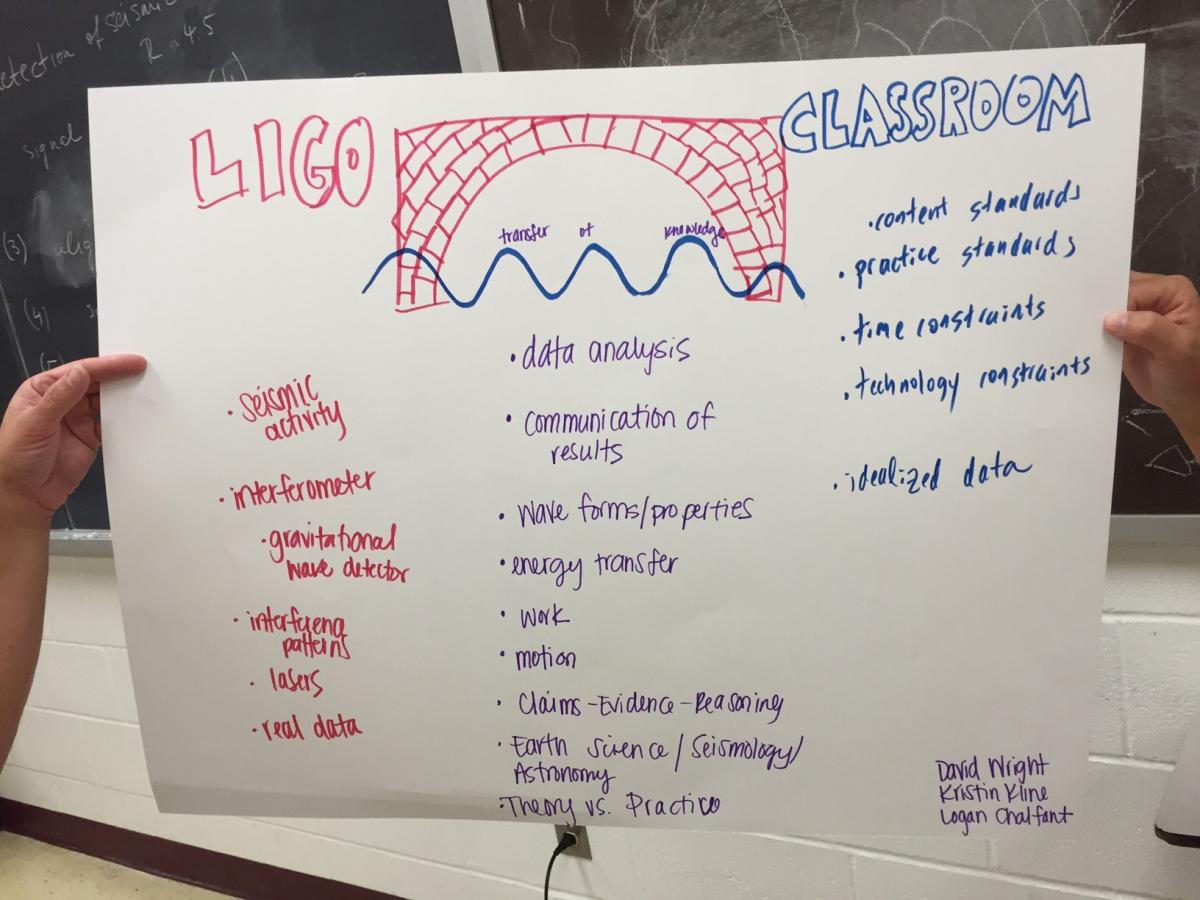 etection of seismic
2 4.5
signal
(3) alig
(4)
LIGO
CLASSROOM
transfer of knowledge
• seismic
activity
• interferometer
• gravitational
wave detector
• interference
patterns
• lasers
• real data
• data analysis
• communication of
results
• wave forms/properties
• energy transfer
• work
• motion
• Claims-Evidence-Reasoning
• Earth Science/Seismology/
Astronomy
• Theory vs. Practice
• content standards
• practice standards
• time constraints
• technology constraints
• idealized data
David Wright
Kristin Kline
Logan Chalfant